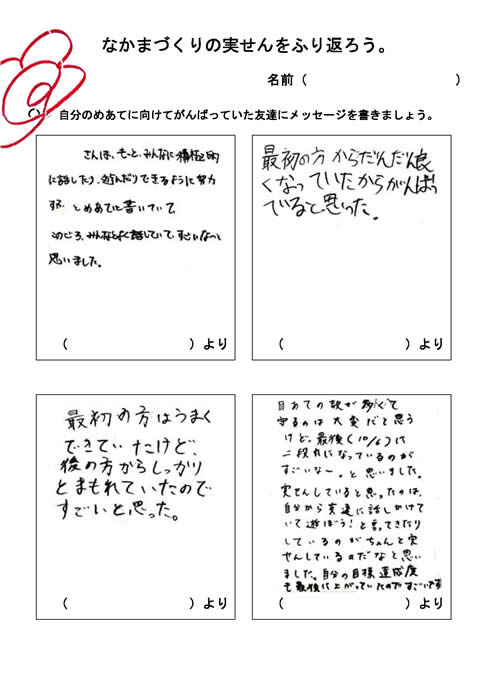 なかまづくりの実せんをふり返ろう。
名前（　　　　　　　　　　）
自分のめあてに向けてがんばっていた友達にメッセージを書きましょう。
さんは、もっと、みんなに積極的
に話したり、遊んだりできるように努力
する。とめあてに書いていて、
このごろ、みんなとよく話していて、すごいなーと
思いました。
（　　　　　　　　）より
最初の方からだんだん良
くなっていたからがんばっ
ていると思った。
（　　　　　　　　）より
最初の方はうまく
できていたけど、
後の方からしっかり
とまもれていたので
すごいと思った。
（　　　　　　　　）より
目あての数が多くて
守るのは大変だと思う
けど、最後(10/6)に
二段れになっているのが
すごいなー。と思いました。
実せんしていると思ったのは、
自分から友達に話しかけて
いて遊ぼう！と言ってきたり
しているのがちゃんと実
せんしているのだなと思い
ました。自分の目標達成度
も最後に上がっていたのですごいです
（　　　　　　　　）より